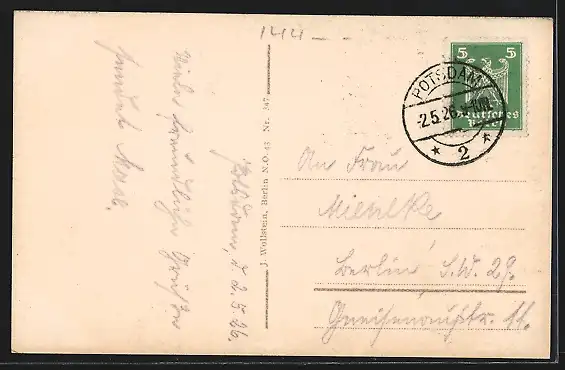 144
5 5
Deutsches
Reich
POTSDAM
2.5.26
* 2 *
Potsdam, d. 2.5.26.
Viele freundliche Grüße
sendet
J. Wollstein, Berlin N.O. 43 Nr. 347
An Frau
Mielke
Berlin S.W. 29.
Gneisenaustr. 11.